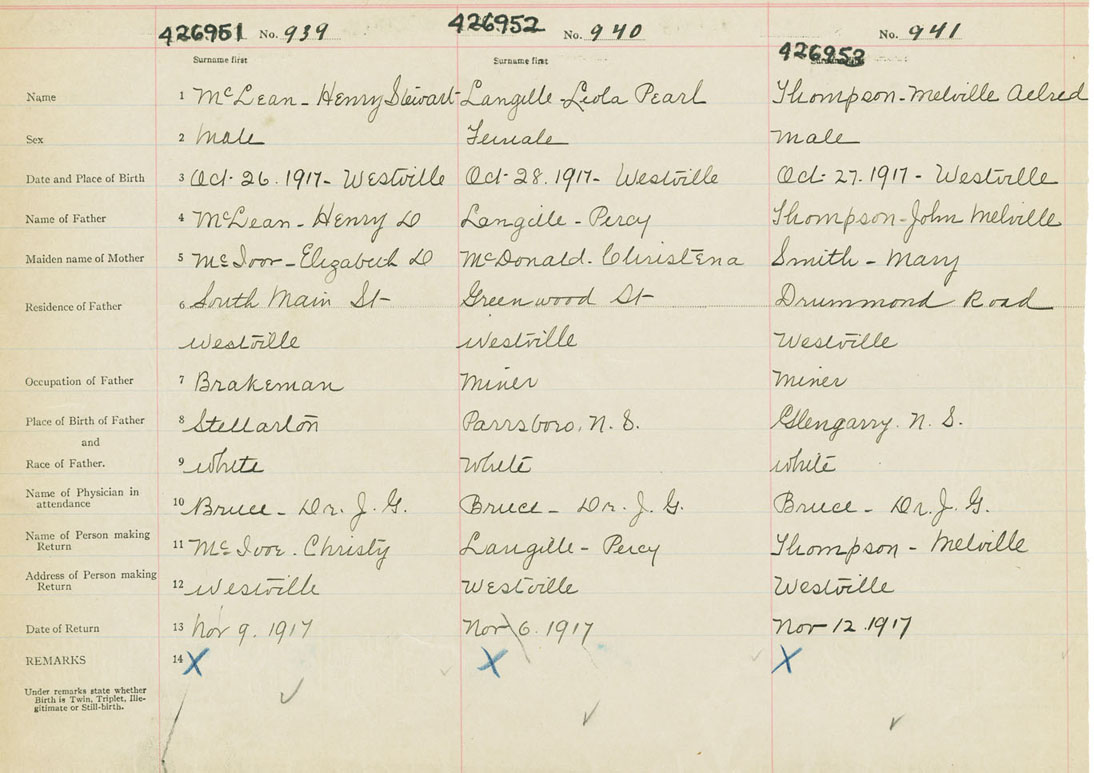 426951 No. 939 426952 No. 940 No. 941
426953
Surname first Surname first Surname first
Name 1 McLean - Henry Stewart Langille - Leola Pearl Thompson - Melville Aelred
Sex 2 Male Female Male
Date and Place of Birth 3 Oct. 26. 1917 - Westville Oct. 28. 1917 - Westville Oct. 27. 1917 - Westville
Name of Father 4 McLean - Henry D Langille - Percy Thompson - John Melville
Maiden name of Mother 5 McIvor - Elizabeth D McDonald. Christena Smith - Mary
Residence of Father 6 South Main St Greenwood St Drummond Road
Westville Westville Westville
Occupation of Father 7 Brakeman Miner Miner
Place of Birth of Father 8 Stellarton Parrsboro, N. S. Glengarry. N. S.
and
Race of Father. 9 White White White
Name of Physician in
attendance 10 Bruce - Dr. J. G. Bruce - Dr. J. G. Bruce - Dr. J. G.
Name of Person making
Return 11 McIvor. Christy Langille - Percy Thompson - Melville
Address of Person making
Return 12 Westville Westville Westville
Date of Return 13 Nov 9. 1917 Nov 6. 1917 Nov 12. 1917
REMARKS 14 X X X
Under remarks state whether
Birth is Twin, Triplet, Ille-
gitimate or Still-birth.